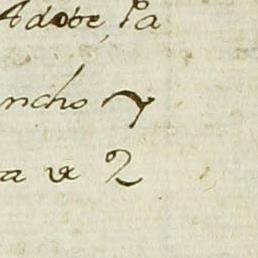 Adobe, la
ncho y
a de 2